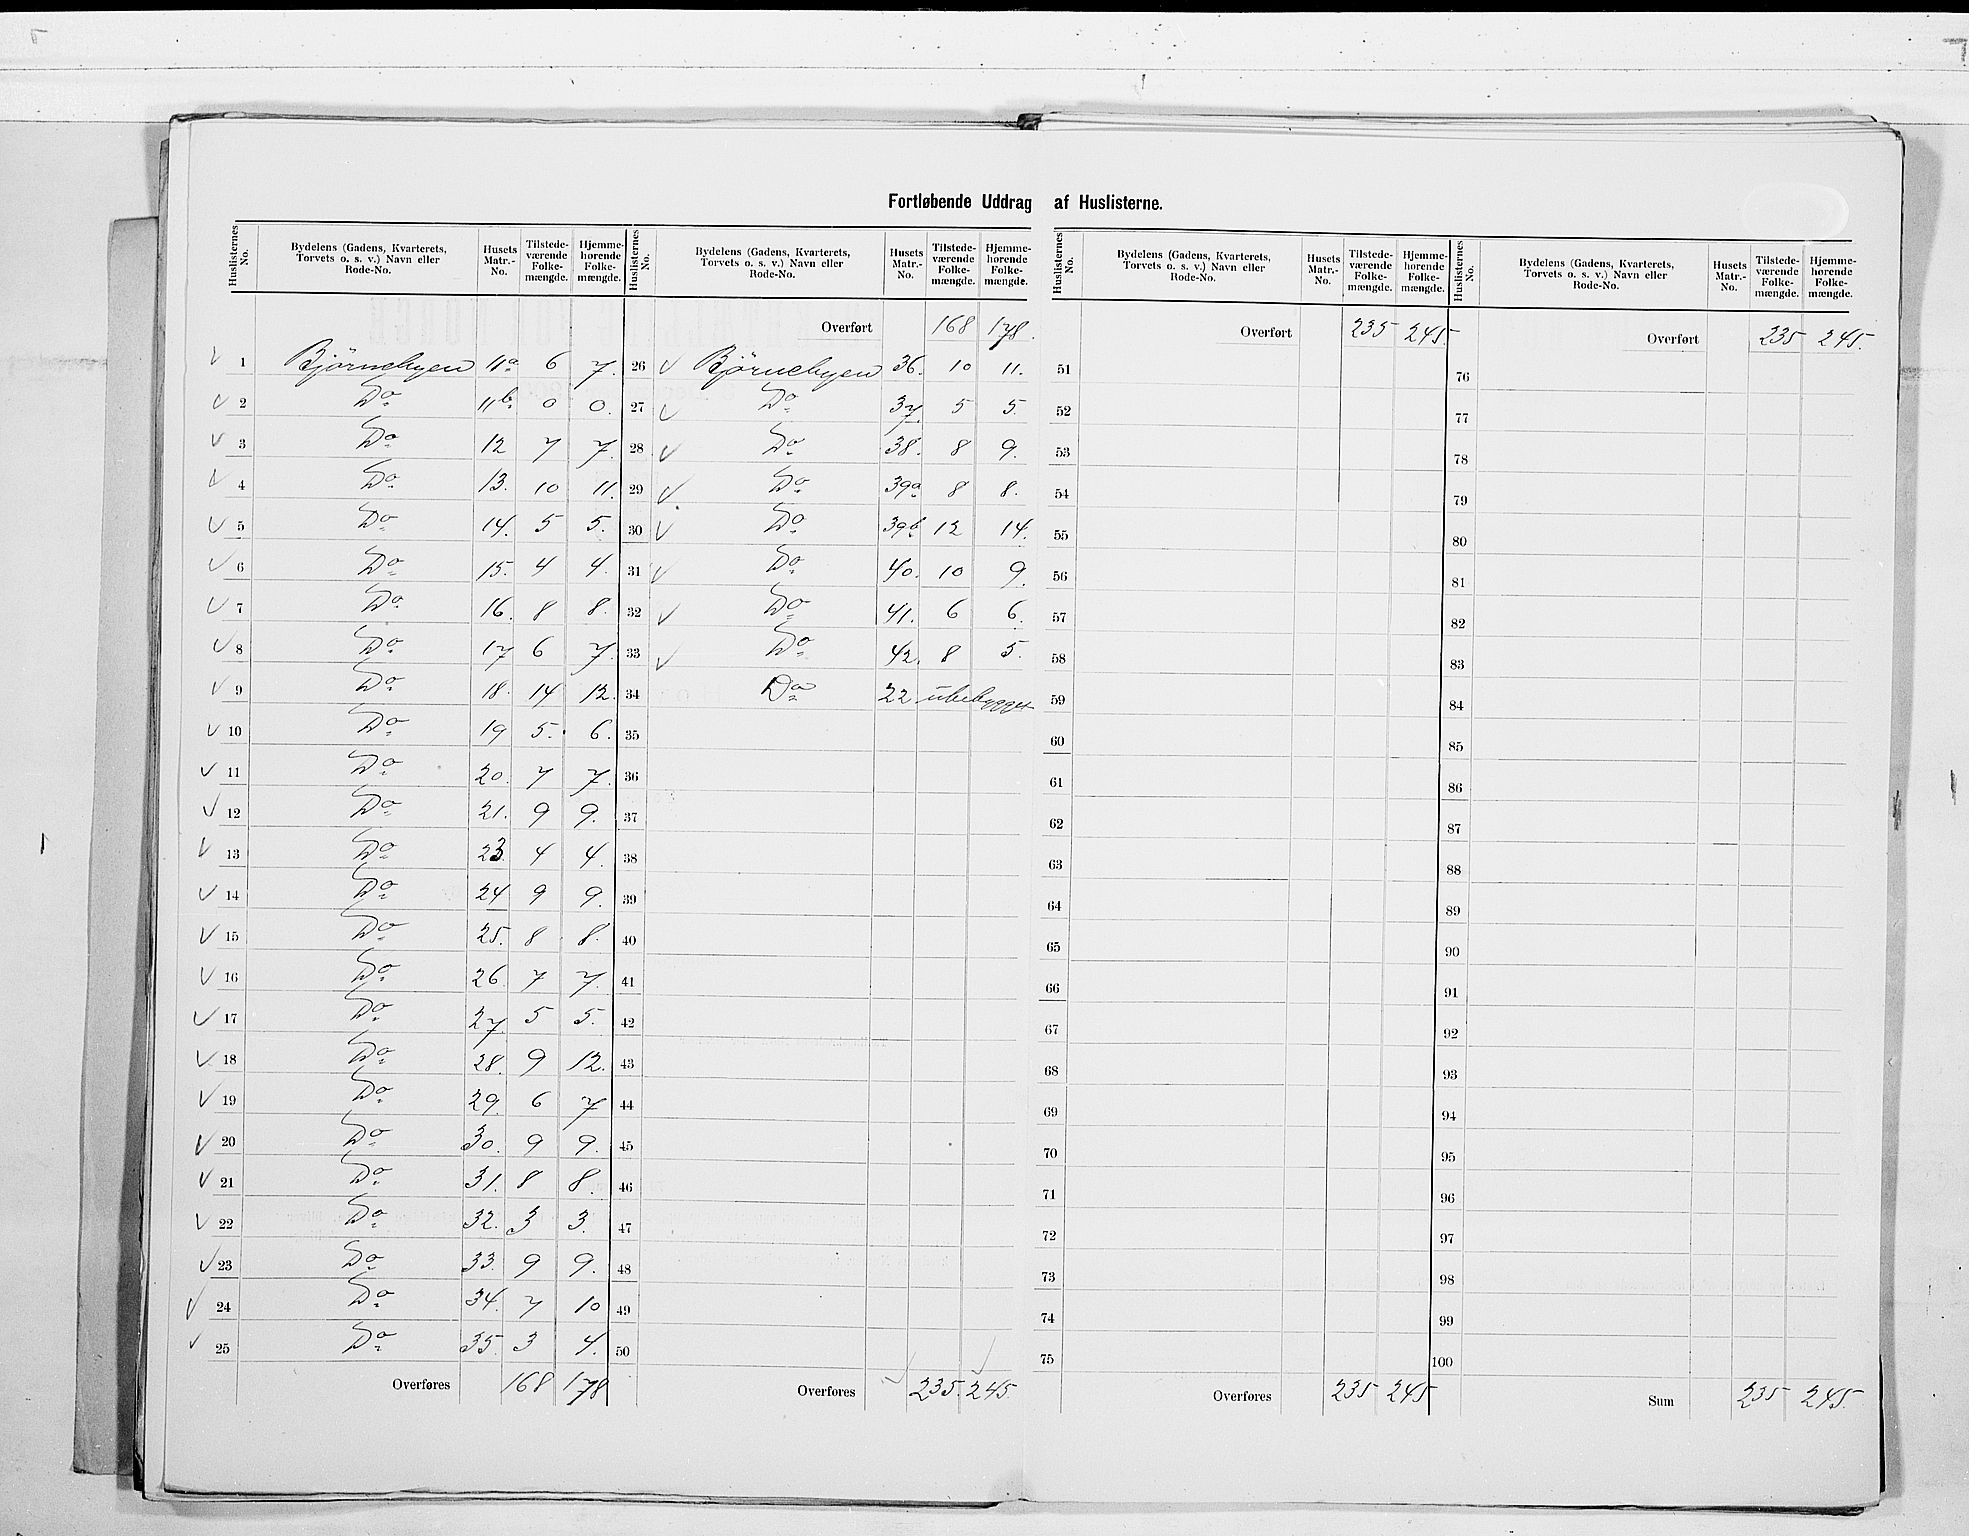 Fortløbende Uddrag af Huslisterne.
Huslisternes No. Bydelens (Gadens, Kvarterets, Torvets o. s. v.) Navn eller Rode-No. Husets Matr.-No. Tilstedeværende Folkemængde. Hjemmehørende Folkemængde.
1 Bjørnebyen 11a 6 7.
2 Do 11b. 0 0.
3 Do 12 7 7.
4 Do 13. 10 11.
5 Do 14. 5 5.
6 Do 15. 4 4.
7 Do 16. 8 8.
8 Do 17 6 7.
9 Do 18. 14 12.
10 Do 19 5. 6.
11 Do 20. 7 7.
12 Do 21. 9 9.
13 Do 23. 4 4.
14 Do 24 9 9.
15 Do 25. 8 8.
16 Do 26. 7 7.
17 Do 27. 5 5.
18 Do 28. 9 12.
19 Do 29. 6 7
20 Do 30. 9 9.
21 Do 31. 8 8.
22 Do 32. 3 3.
23 Do 33. 9 9.
24 Do 34. 7 10
25 Do 35. 3 4.
Overføres 168 178
Huslisternes No. Bydelens (Gadens, Kvarterets, Torvets o. s. v.) Navn eller Rode-No. Husets Matr.-No. Tilstedeværende Folkemængde. Hjemmehørende Folkemængde.
Overført 168 178.
26 Bjørnebyen 36. 10 11.
27 Do 37. 5 5.
28 Do 38. 8 9.
29 Do 39a 8 8.
30 Do 39b 12 14.
31 Do 40. 10 9.
32 Do 41. 6 6.
33 Do 42. 8 5.
34 Do 22 ubebygget
35
36
37
38
39
40
41
42
43
44
45
46
47
48
49
50
Overføres 235. 245.
Huslisternes No. Bydelens (Gadens, Kvarterets, Torvets o. s. v.) Navn eller Rode-No. Husets Matr.-No. Tilstedeværende Folkemængde. Hjemmehørende Folkemængde.
Overført 235 245.
51
52
53
54
55
56
57
58
59
60
61
62
63
64
65
66
67
68
69
70
71
72
73
74
75
Overføres 235 245
Huslisternes No. Bydelens (Gadens, Kvarterets, Torvets o. s. v.) Navn eller Rode-No. Husets Matr.-No. Tilstedeværende Folkemængde. Hjemmehørende Folkemængde.
Overført 235 245.
76
77
78
79
80
81
82
83
84
85
86
87
88
89
90
91
92
93
94
95
96
97
98
99
100
Sum 235 245.